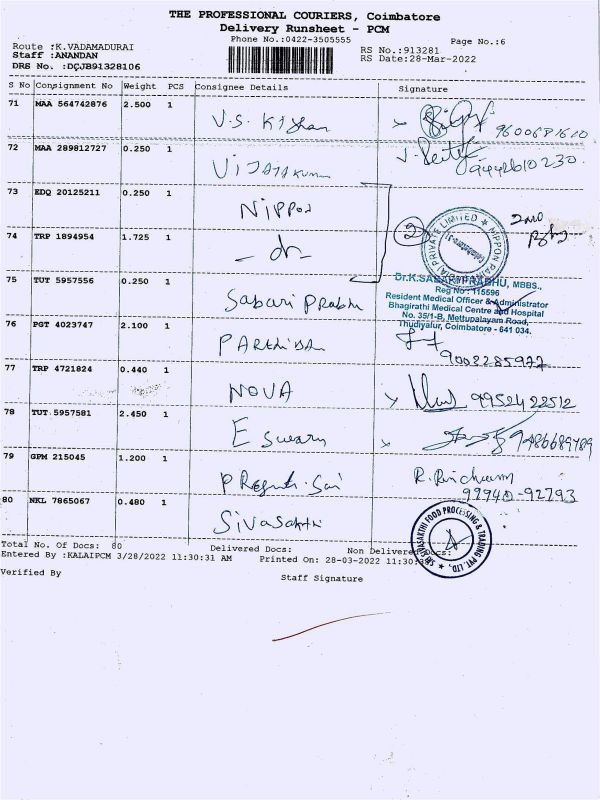 THE PROFESSIONAL COURIERS, Coimbatore
Delivery Runsheet - PCM
Phone No.:0422-3505555
Page No.:6
Route :K.VADAMADURAI
Staff :ANANDAN
DRS No. :DCJB91328106
RS No.:913281
RS Date:28-Mar-2022
S No Consignment No Weight PCS Consignee Details Signature
71 MAA 564742876 2.500 1 V.S. Kishan 9600681610
72 MAA 289812727 0.250 1 Vijayakumar 9442610230
73 EDQ 20125211 0.250 1 Nippon
2
74 TRP 1894954 1.725 1 - do -
NIPPON PAIN PRIVATE LIMITED
75 TUT 5957556 0.250 1 Sabari Prabhu
Dr.K.SABARI PRABHU, MBBS.,
Reg No : 115596
Resident Medical Officer & Administrator
Bhagirathi Medical Centre and Hospital
No. 35/1-B, Mettupalayam Road,
Thudiyalur, Coimbatore - 641 034.
76 PGT 4023747 2.100 1
77 TRP 4721824 0.440 1 NOVA 9952422512
78 TUT 5957581 2.450 1 Eswary 9486689789
79 GPM 215045 1.200 1
99940-92793
80 NKL 7865067 0.480 1 Sivasakthi
SRI SIVASAKTHI FOOD PROCESSING & TRADING PVT. LTD.,
Total No. Of Docs: 80 Delivered Docs: Non Delivered Docs:
Entered By :KALAIPCM 3/28/2022 11:30:31 AM Printed On: 28-03-2022 11:30:
Verified By
Staff Signature